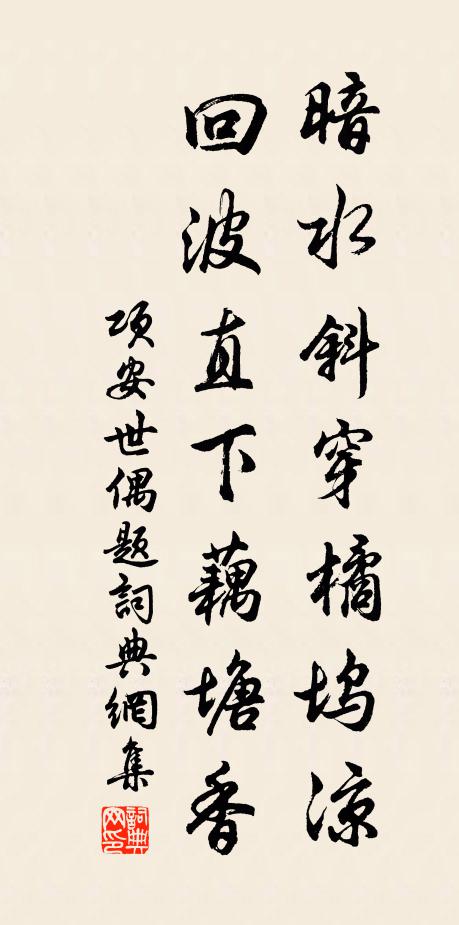 暗水斜穿橘坞凉
回波直下藕塘香
项安世偶题詞典網集
詞典
网印